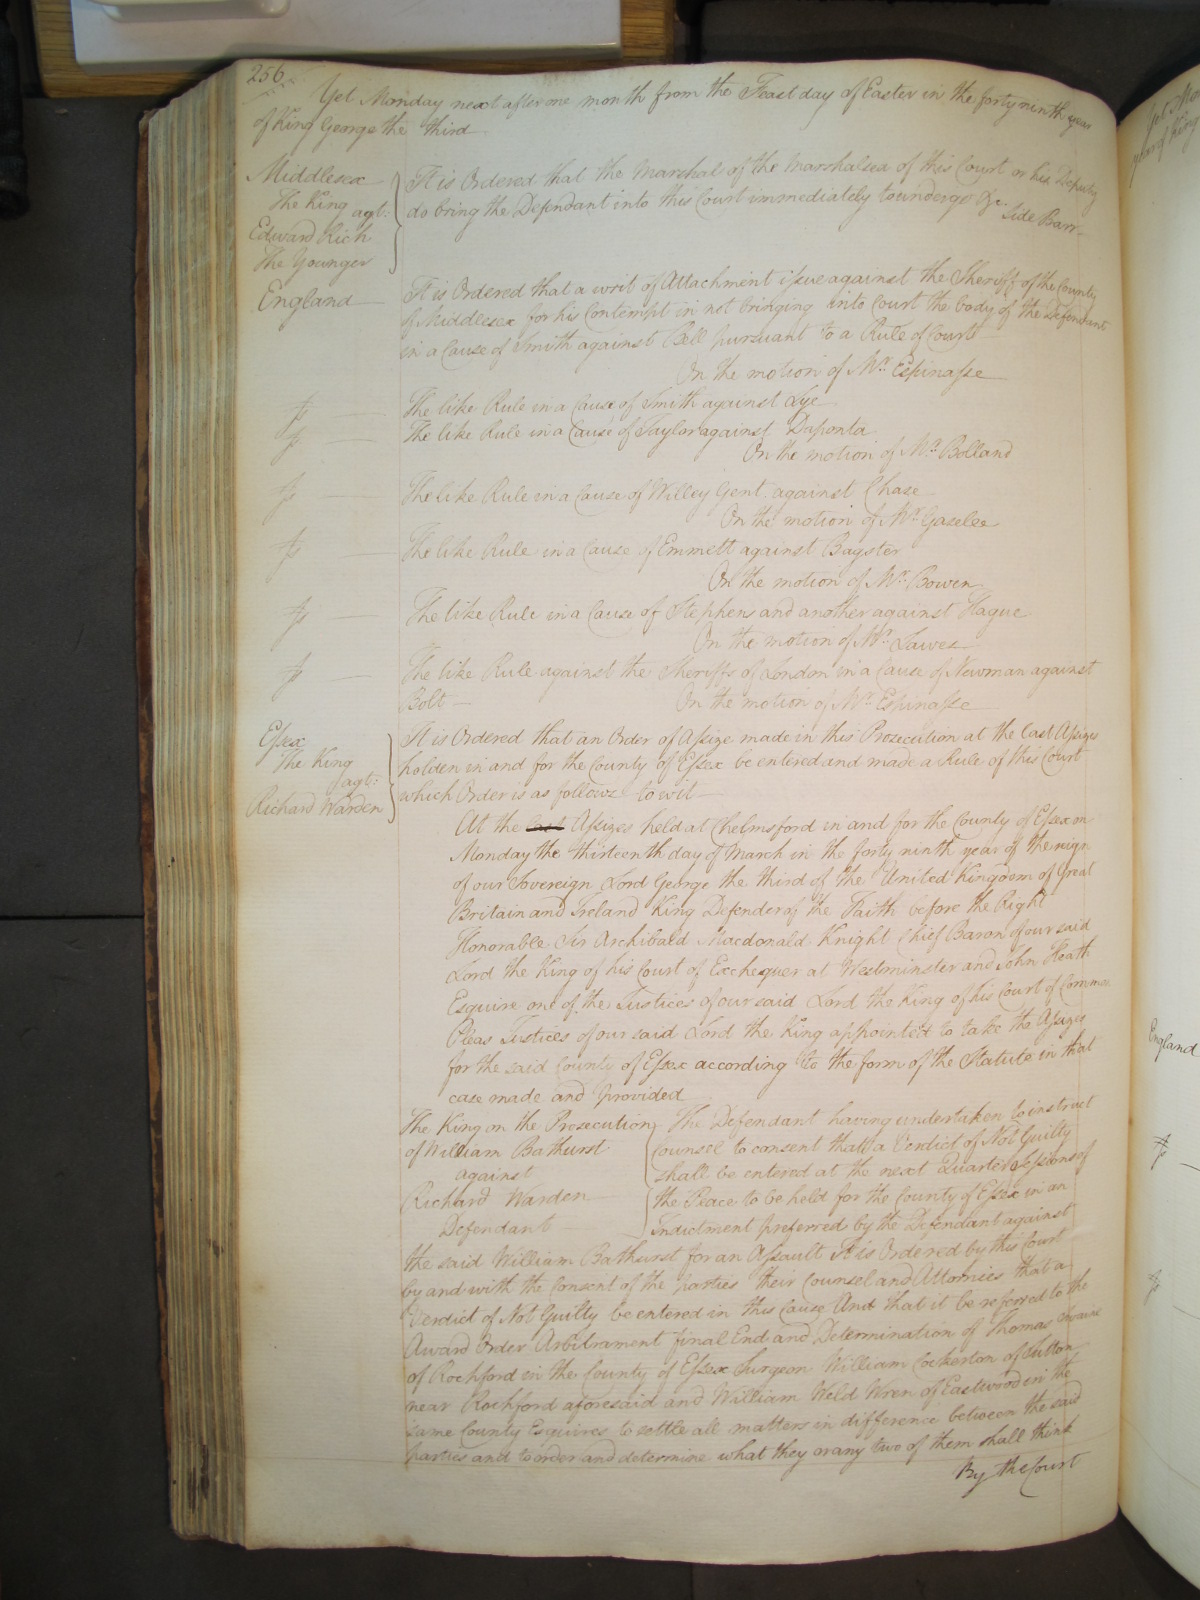 256
Yet Monday next after one month from the Feast day of Easter in the forty ninth year
of King George the third
Middlesex
The King agt:
Edward Rich
The Younger
It is Ordered that the Marshal of the Marshalsea of this Court or his Deputy
do bring the Defendant into this Court immediately to undergo &c.
Side Barr
England
It is Ordered that a writ of Attachment issue against the Sheriff of the County
of Middlesex for his Contempt in not bringing into Court the body of the Defendant
in a Cause of Smith against Bell pursuant to a Rule of Court
On the motion of Mr. Espinasse
The like Rule in a Cause of Smith against Lye
The like Rule in a Cause of Taylor against Daponta
On the motion of Mr. Bolland
The like Rule in a Cause of Willey Gent. against Chase
On the motion of Mr. Gaselee
The like Rule in a Cause of Emmett against Bagster
On the motion of Mr. Bowen
The like Rule in a Cause of Stephens and another against Hague
On the motion of Mr. Lawes
The like Rule against the Sheriffs of London in a Cause of Newman against
Bolt
On the motion of Mr. Espinasse
Essex
The King
agt:
Richard Warden
It is Ordered that an Order of Assize made in this Prosecution at the last Assizes
holden in and for the County of Essex be entered and made a Rule of this Court
which Order is as follows to wit
At the Assizes held at Chelmsford in and for the County of Essex on
Monday the thirteenth day of March in the forty ninth year of the reign
of our Sovereign Lord George the third of the United Kingdom of Great
Britain and Ireland King Defender of the Faith before the Right
Honorable Sir Archibald Macdonald Knight Chief Baron of our said
Lord the King of his Court of Exchequer at Westminster and John Heath
Esquire one of the Justices of our said Lord the King of his Court of Common
Pleas Justices of our said Lord the King appointed to take the Assizes
for the said County of Essex according to the form of the Statute in that
case made and provided
The King on the Prosecution
of William Bathurst
against
Richard Warden
Defendant
The Defendant having undertaken to instruct
Counsel to consent that a Verdict of Not Guilty
shall be entered at the next Quarter Sessions of
the Peace to be held for the County of Essex in an
Indictment preferred by the Defendant against
the said William Bathurst for an Assault It is Ordered by this Court
by and with the Consent of the parties their Counsel and Attornies that a
Verdict of Not Guilty be entered in this Cause And that it be referred to the
Award Order Arbitrament final End and Determination of Thomas
of Rochford in the County of Essex Surgeon William Cockerton of Sutton
near Rochford aforesaid and William Weld Wren of Eastwood in the
same County Esquires to settle all matters in difference between the said
parties and to order and determine what they or any two of them shall think
By the Court
England